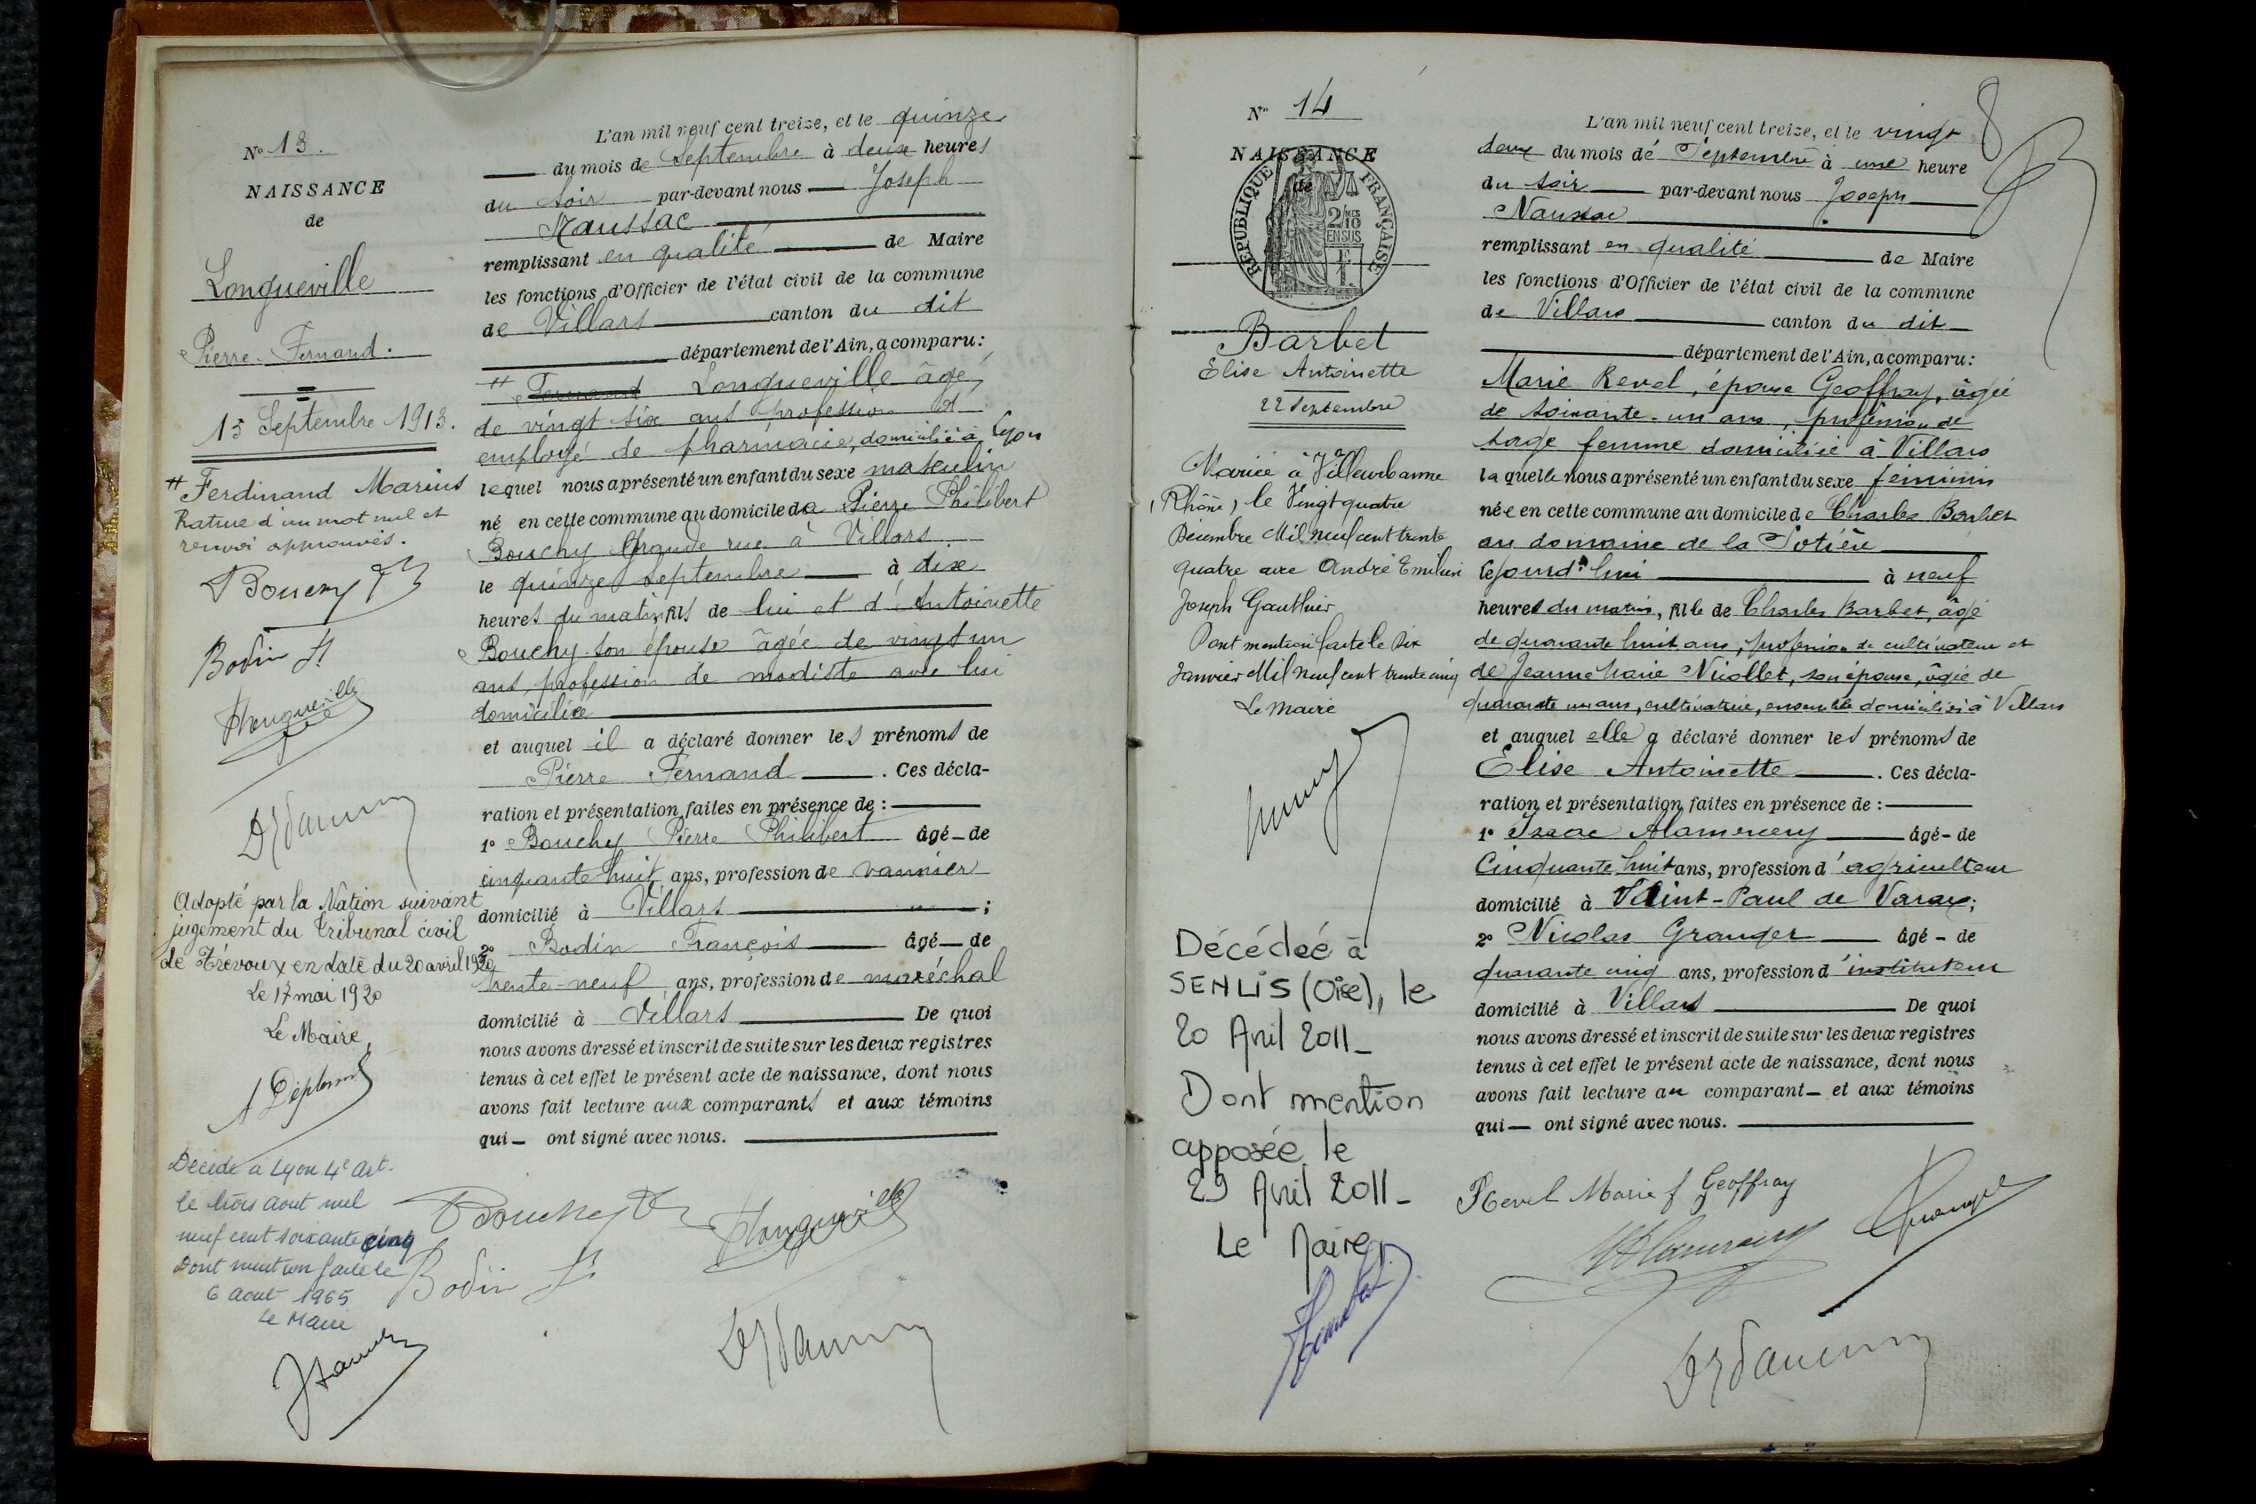 N° 13.
NAISSANCE
de
Longueville
Pierre-Fernand.
15 Septembre 1913.
# Ferdinand Marius
Rature d'un mot nul et
renvoi approuvés.
Bouchy
Bodin
Longueville
Adopté par la Nation suivant
jugement du Tribunal civil
de Trévoux en date du 20 avril 1920
Le 17 mai 1920
Le Maire,
Décédé à Lyon 4e Art.
le trois aout mil
neuf cent soixante cinq
Dont mention faite le
6 aout 1965
Le Maire
L'an mil neuf cent treize, et le quinze
du mois de Septembre à deux heures
du soir par-devant nous Joseph
Naussac
remplissant en qualité de Maire
les fonctions d'Officier de l'état civil de la commune
de Villars canton du dit
département de l'Ain, a comparu:
# Fernand Longueville âgé
de vingt six ans profession d'
employé de pharmacie, domicilié à Lyon
lequel nous a présenté un enfant du sexe masculin
né en cette commune au domicile de Pierre Philibert
Bouchy Grande rue à Villars
le quinze septembre à dix
heures du matin, fils de lui et d'Antoinette
Bouchy son épouse âgée de vingt un
ans, profession de modiste avec lui
domiciliée
et auquel il a déclaré donner les prénoms de
Pierre Fernand. Ces décla-
ration et présentation faites en présence de:
1° Bouchy Pierre Philibert âgé de
cinquante huit ans, profession de vannier
domicilié à Villars;
2° Bodin François âgé de
trente-neuf ans, profession de maréchal
domicilié à Villars De quoi
nous avons dressé et inscrit de suite sur les deux registres
tenus à cet effet le présent acte de naissance, dont nous
avons fait lecture aux comparants et aux témoins
qui ont signé avec nous.
Bouchy
Longueville
Bodin
N° 14
NAISSANCE
de
RÉPUBLIQUE FRANÇAISE
2/10
EN SUS
Barbet
Elise Antoinette
22 Septembre
Mariée à Villeurbanne
(Rhône), le Vingt quatre
Décembre Mil neuf cent trente
quatre avec André Emilien
Joseph Gauthier
Dont mention faite le Six
Janvier Mil neuf cent trente cinq
Le Maire
Décédée à
SENLIS (Oise), le
20 Avril 2011_
Dont mention
apposée le
29 Avril 2011_
Le Maire,
8
L'an mil neuf cent treize, et le vingt
deux du mois de Septembre à une heure
du soir par-devant nous Joseph
Naussac
remplissant en qualité de Maire
les fonctions d'Officier de l'état civil de la commune
de Villars canton du dit
département de l'Ain, a comparu:
Marie Revel, épouse Geoffray, âgée
de soixante-un ans, profession de
sage femme domiciliée à Villars
laquelle nous a présenté un enfant du sexe féminin
née en cette commune au domicile de Charles Barbet
au domaine de la
cejourd'hui à neuf
heures du matin, fille de Charles Barbet, âgé
de quarante huit ans, profession de cultivateur et
de Jeanne Marie Nicollet, son épouse, âgée de
quarante un ans, cultivatrice, ensemble domiciliés à Villars
et auquel elle a déclaré donner les prénoms de
Elise Antoinette. Ces décla-
ration et présentation faites en présence de:
1° Isaac Alamercery âgé de
Cinquante huit ans, profession d'agriculteur
domicilié à Saint-Paul de Varax;
2° Nicolas Granger âgé de
quarante cinq ans, profession d'instituteur
domicilié à Villars De quoi
nous avons dressé et inscrit de suite sur les deux registres
tenus à cet effet le présent acte de naissance, dont nous
avons fait lecture au comparant et aux témoins
qui ont signé avec nous.
Revel Marie f Geoffray
Alamercery
Granger